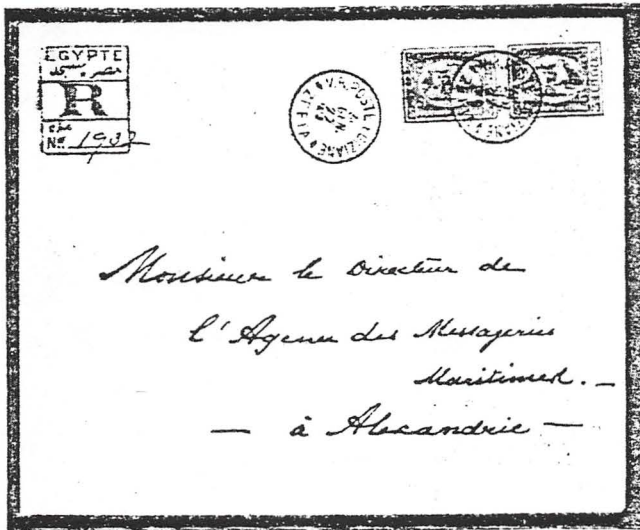 EGYPTE
R
No 1932
V.R. POSTE EGIZIANE
Monsieur le Directeur de
l'Agence des Messageries
Maritimes. —
— à Alexandrie —